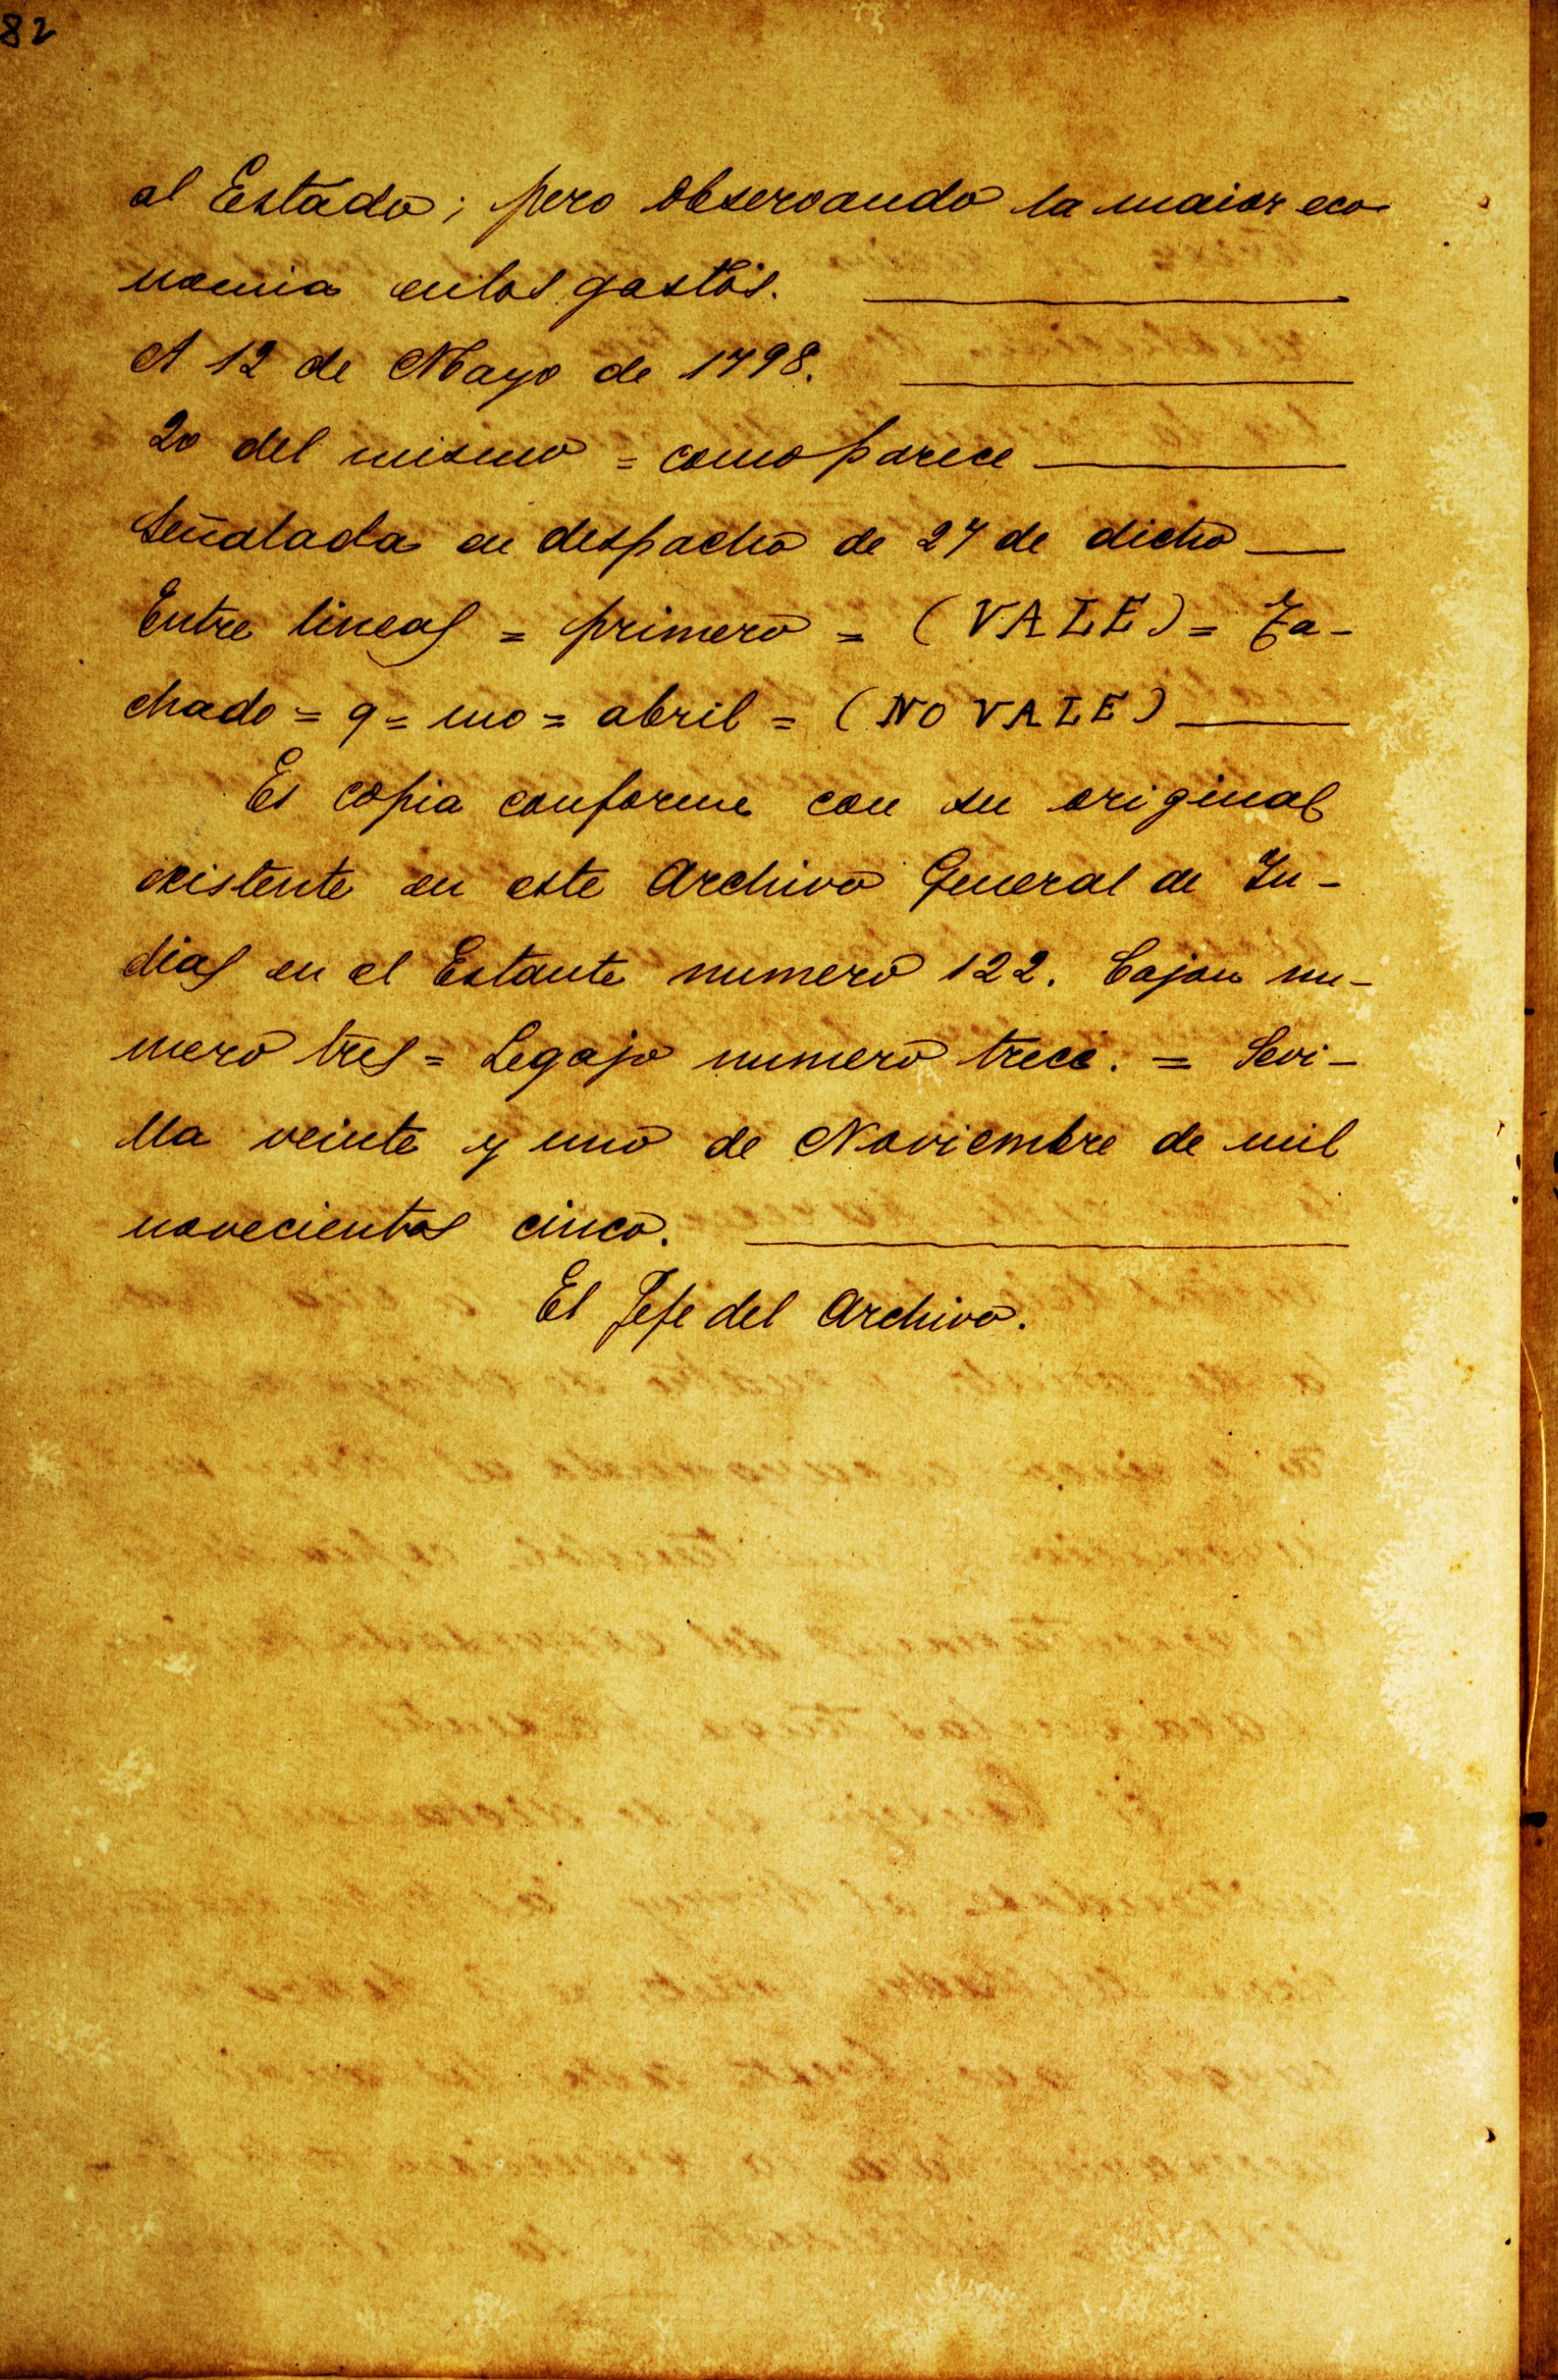 82
al Estado; pero observando la maior eco-
nomia enlos gastos.
A 12 de Mayo de 1798.
20 del mismo = como parece
Señalada en despacho de 27 de dicho
Entre lineas = primero = (VALE) = Ta-
chado = q = mo = abril = (NO VALE)
Es copia conforme con su original
existente en este Archivo General de In-
dias en el Estante numero 122. Cajon nu-
mero tres = Legajo numero trece. = Sevi-
lla veinte y uno de Noviembre de mil
novecientos cinco.
El Jefe del Archivo.